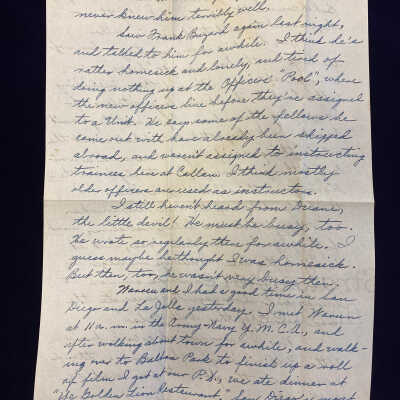 never knew him terribly well.
Saw Frank again last night,
and talked to him for awhile. I think he's
rather homesick and lonely, and tired of
doing nothing up at the Officers' "Pool", where
the new officers live before they're assigned
to a Unit. He says some of the fellows he
came out with have already been shipped
abroad, and weren't assigned to instructing
trainees here at Callan. I think mostly
older officers are used as instructors.
I still haven't heard from
the little devil! He must be busy, too.
He wrote so regularly there for awhile. I
guess maybe he thought I was homesick.
But then, too, he wasn't very busy then.
and I had a good time in San
Diego and La Jolla yesterday. I met
at 11 a.m. in the Army-Navy Y.M.C.A., and
after walking about town for awhile, and walk-
ing over to Balboa Park to finish up a roll
of film I got at our P.X., we ate dinner at
"The Golden Lion Restaurant," San Diego's most